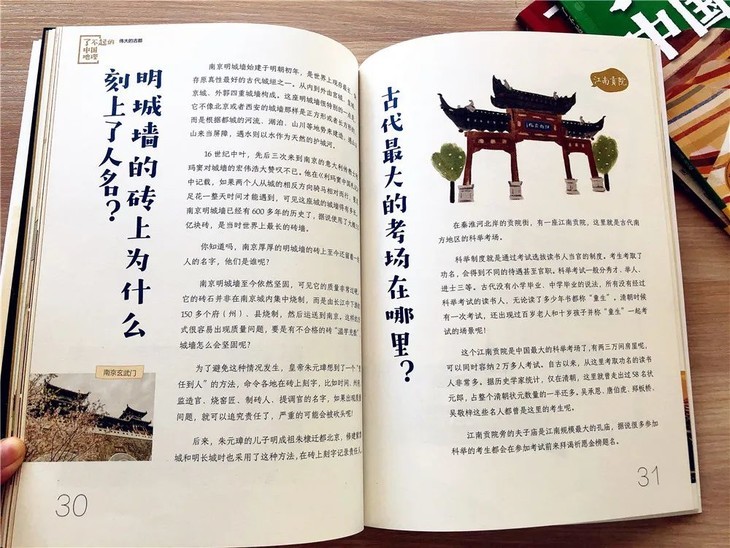 了不起的
中国
地理
伟大的古都
明城墙的砖上为什么
刻上了人名？
南京明城墙始建于明朝初年，是世界上现存最
存原真性最好的古代城垣之一。从内到外由宫城、皇
京城、外郭四重城墙构成。这座明城墙很特别的一点是
它不像北京或者西安的城墙那样是正方形或者长方形的
而是根据都城的河流、湖泊、山川等地势来建造，遇山
山来当屏障，遇水则以水作为天然的护城河。
16 世纪中叶，先后三次来到南京的意大利传教士
玛窦对城墙的宏伟浩大赞叹不已。他在《利玛窦中国札记》
中记载，如果两个人从城的相反方向骑马相对而行，
足花一整天时间才能遇到，可见这座城的城墙得有多
南京明城墙已经有 600 多年的历史了，据说使用了大概
亿块砖，是当时世界上最长的砖墙。
你知道吗，南京厚厚的明城墙的砖上至今还留着一
人的名字，他们是谁呢？
南京明城墙至今依然坚固，可见它的质量非常过硬
它的砖石并非在南京城内集中烧制，而是由长江中下游的
150 多个府（州）、县烧制，然后运送到南京。这样的
式很容易出现质量问题，要是有不合格的砖“滥竽充数”
城墙怎么会坚固呢？
为了避免这种情况发生，皇帝朱元璋想到了一个“
任到人”的方法，命令各地在砖上刻字，比如时间、州府
监造官、烧窑匠、制砖人、提调官的名字，如果出现质量
问题，就可以追究责任了，严重的可能会被砍头呢！
后来，朱元璋的儿子明成祖朱棣迁都北京，修建紫禁
城和明长城时也采用了这种方法，在砖上刻字记录责任人。
南京玄武门
30
古代最大的考场在哪里？
江南贡院
在秦淮河北岸的贡院街，有一座江南贡院，这里就是古代南
方地区的科举考场。
科举制度就是通过考试选拔读书人当官的制度。考生考取了
功名，会得到不同的待遇甚至官职。科举考试一般分秀才、举人、
进士三等。古代没有小学毕业、中学毕业的说法，所有没有经过
科举考试的读书人，无论读了多少年书都称“童生”，清朝时候
有一次考试，还出现过百岁老人和十岁孩子并称“童生”一起考
试的场景呢！
这个江南贡院是中国最大的科举考场了，有两三万间房屋呢，
可以同时容纳 2 万多人考试。自古以来，从这里考取功名的读书
人非常多。据历史学家统计，仅在清朝，这里就曾走出过 58 名状
元郎，占整个清朝状元数量的一半还多。吴承恩、唐伯虎、郑板桥、
吴敬梓这些名人都曾是这里的考生呢。
江南贡院旁的夫子庙是江南规模最大的孔庙，据说很多参加
科举的考生都会在参加考试前来拜谒祈愿金榜题名。
31
中国